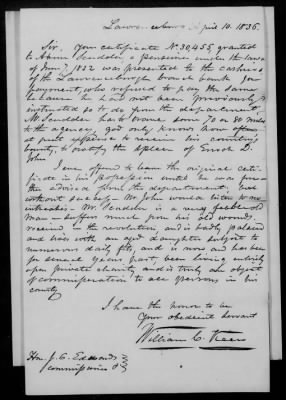 Lawrenceburg April 10. 1836.
Sir. Your certificate No. 30455, granted
to Abner Scudder, a pensioner under the law
of June 7, 1832 was presented to the cashier
of the Lawrenceburgh branch bank for
payment, who refused to pay the same
because he had not been previously
instructed so to do from the department
Mr. Scudder has to come some 70 or 80 miles
to the agency, god only knows how often
at great expense to receive his country's
bounty, to gratify the spleen of Enoch D.
John
I even offered to leave the original certi-
ficate in his possession until he was fur-
ther advised from the department; but
without success. Mr. John would listen to no
entreaties. Mr. Scudder is a very feeble old
man — suffers much from his old wounds,
received in the revolution and is badly palsied
and has with an aged daughter subject to
numerous daily fits, and is now and has been
for several years past, been living entirely
upon private charity, and is truly an object
of commiseration to all persons in his
county.
I have the honor to be
Your obedient servant
William C. Keen
Hon. J. C. Edwards
Commissioner &